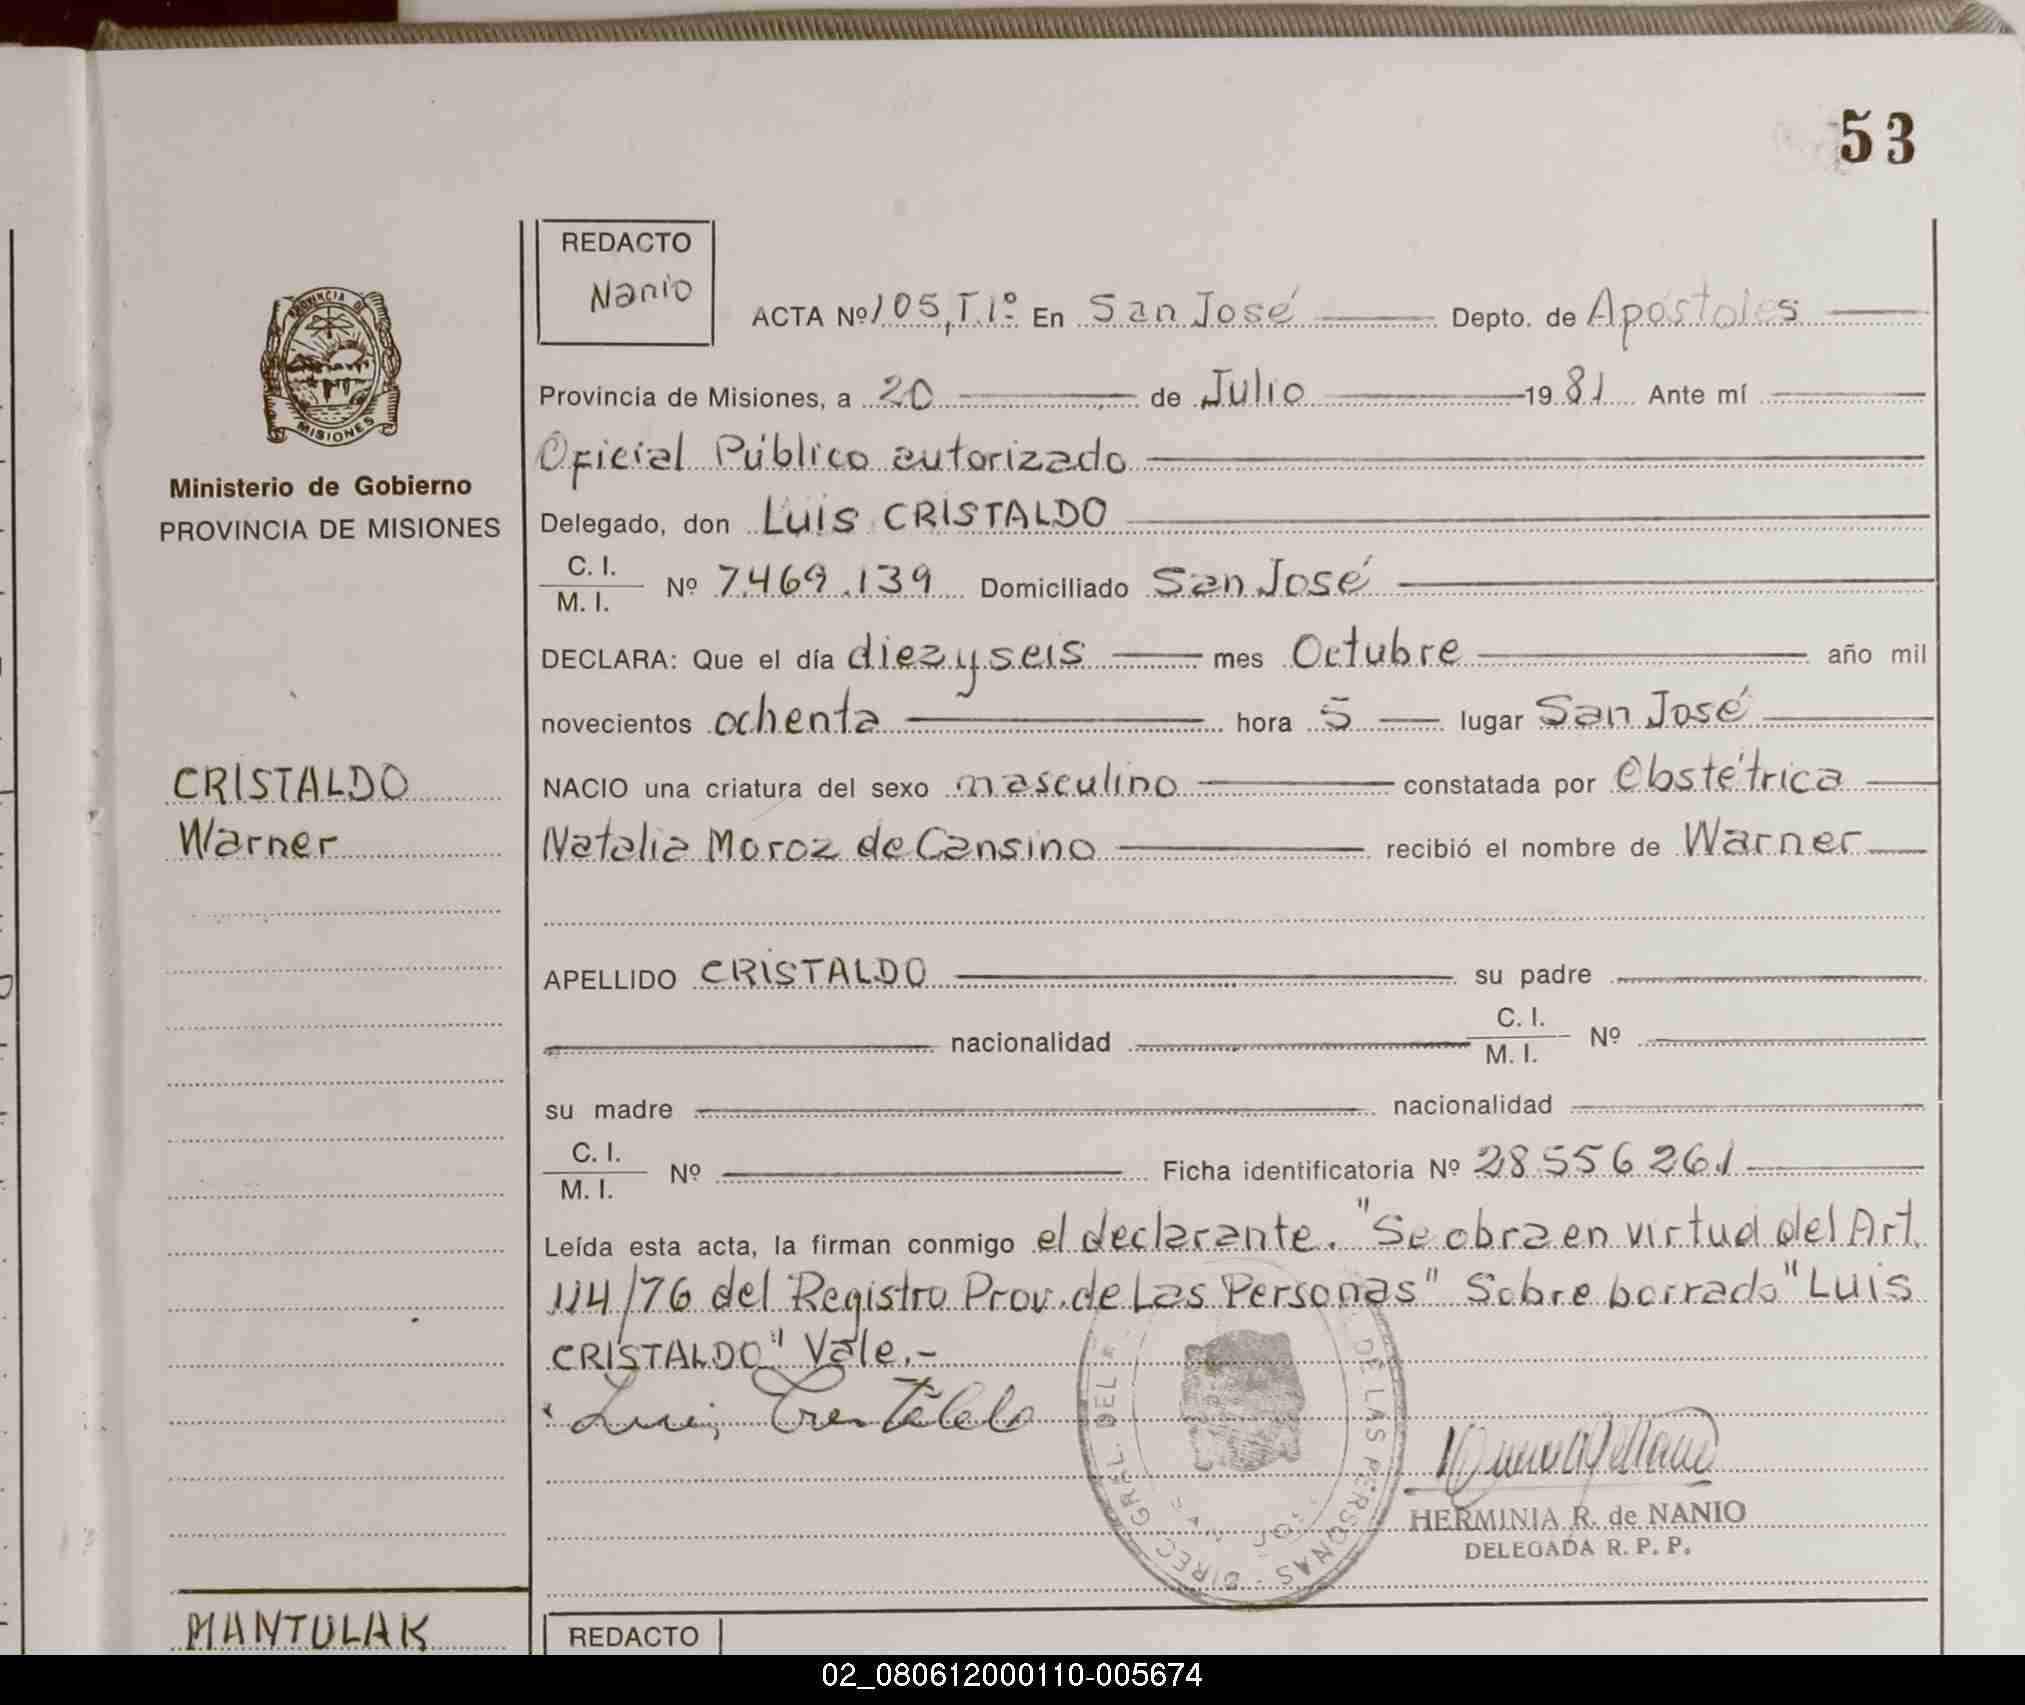 53
REDACTO
Nanio
ACTA Nº 105, T.1º En San José Depto. de Apóstoles
Provincia de Misiones, a 20 de Julio 1981 Ante mí
Oficial Público autorizado
Ministerio de Gobierno
PROVINCIA DE MISIONES
Delegado, don Luis CRISTALDO
C. I.
M. I. Nº 7.469.139 Domiciliado San José
DECLARA: Que el día diez y seis mes Octubre año mil
novecientos ochenta hora 5 lugar San José
CRISTALDO
Warner
NACIO una criatura del sexo masculino constatada por Obstétrica
Natalia Moroz de Cansino recibió el nombre de Warner
APELLIDO CRISTALDO su padre
nacionalidad C. I. M. I. Nº
su madre nacionalidad
C. I.
M. I. Nº Ficha identificatoria Nº 28556261
Leída esta acta, la firman conmigo el declarante. "Se obra en virtud del Art.
114/76 del Registro Prov. de Las Personas" Sobre borrado "Luis
CRISTALDO" Vale.-
Luis Cristaldo
HERMINIA R. de NANIO
DELEGADA R. P. P.
MANTULAK
REDACTO
02_080612000110-005674